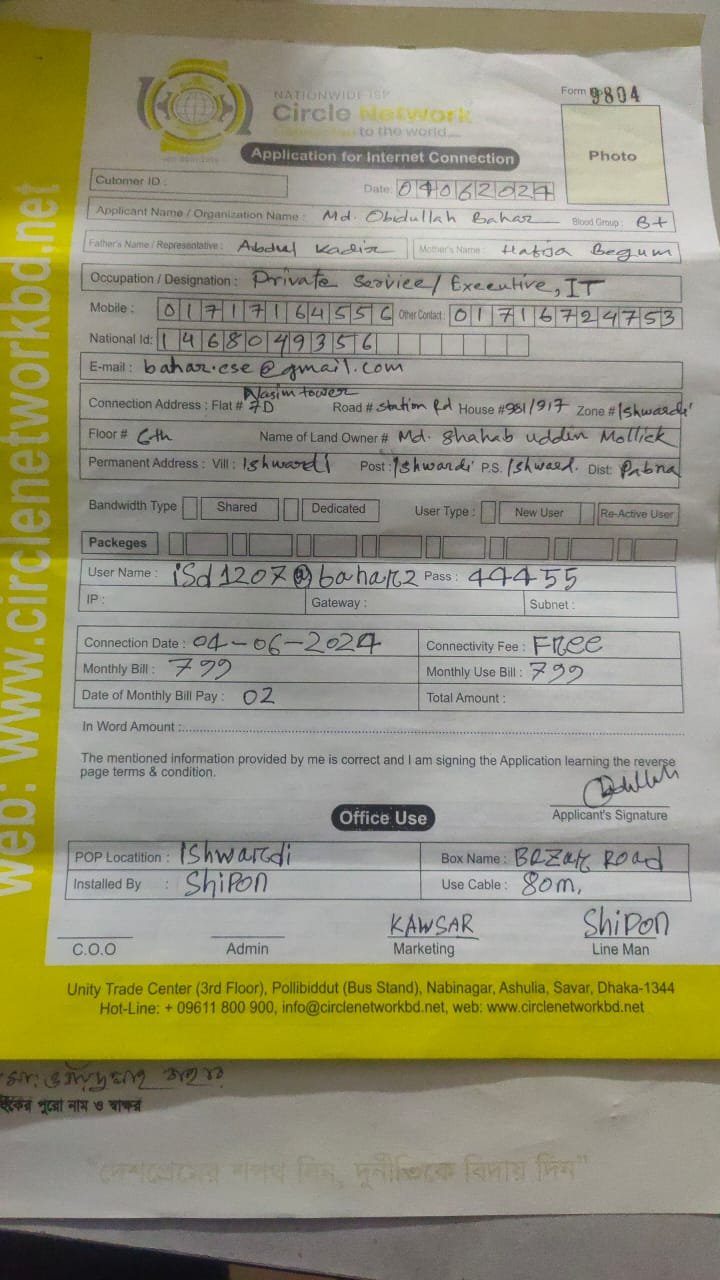 NATIONWIDE ISP
Circle Network
to the world....
Form 9804
Photo
Application for Internet Connection
Cutomer ID :
Date: 04062024
Applicant Name / Organization Name : Md. Obidullah Bahar Blood Group : B+
Father's Name / Representative : Abdul Kadir Mother's Name : Hafija Begum
Occupation / Designation : Private Service/ Executive, IT
Mobile : 01717164556 Other Contact : 01716724753
National Id: 1468049356
E-mail : bahar.cse@gmail.com
Nasim tower
Connection Address : Flat # 7D Road # Station Rd House # 981/917 Zone # Ishwardi
Floor # 6th Name of Land Owner # Md. Shahab uddin Mollick
Permanent Address : Vill : Ishwardi Post : Ishwardi P.S. Ishward. Dist: Pabna
Bandwidth Type Shared Dedicated User Type : New User Re-Active User
Packeges
User Name : iSd1207@bahar2 Pass : 44455
IP : Gateway : Subnet :
Connection Date : 04-06-2024 Connectivity Fee : Free
Monthly Bill : 799 Monthly Use Bill : 799
Date of Monthly Bill Pay : 02 Total Amount :
In Word Amount :
The mentioned information provided by me is correct and I am signing the Application learning the reverse
page terms & condition.
Applicant's Signature
Office Use
POP Locatition : Ishwardi Box Name : BAZAR ROad
Installed By : ShiPON Use Cable : 80m,
KAWSAR ShiPON
C.O.O Admin Marketing Line Man
Unity Trade Center (3rd Floor), Pollibiddut (Bus Stand), Nabinagar, Ashulia, Savar, Dhaka-1344
Hot-Line: + 09611 800 900, info@circlenetworkbd.net, web: www.circlenetworkbd.net
web: www.circlenetworkbd.net
পুরো নাম ও স্বাক্ষর
"দেশপ্রেমের শপথ নিন, দুর্নীতিকে বিদায় দিন"